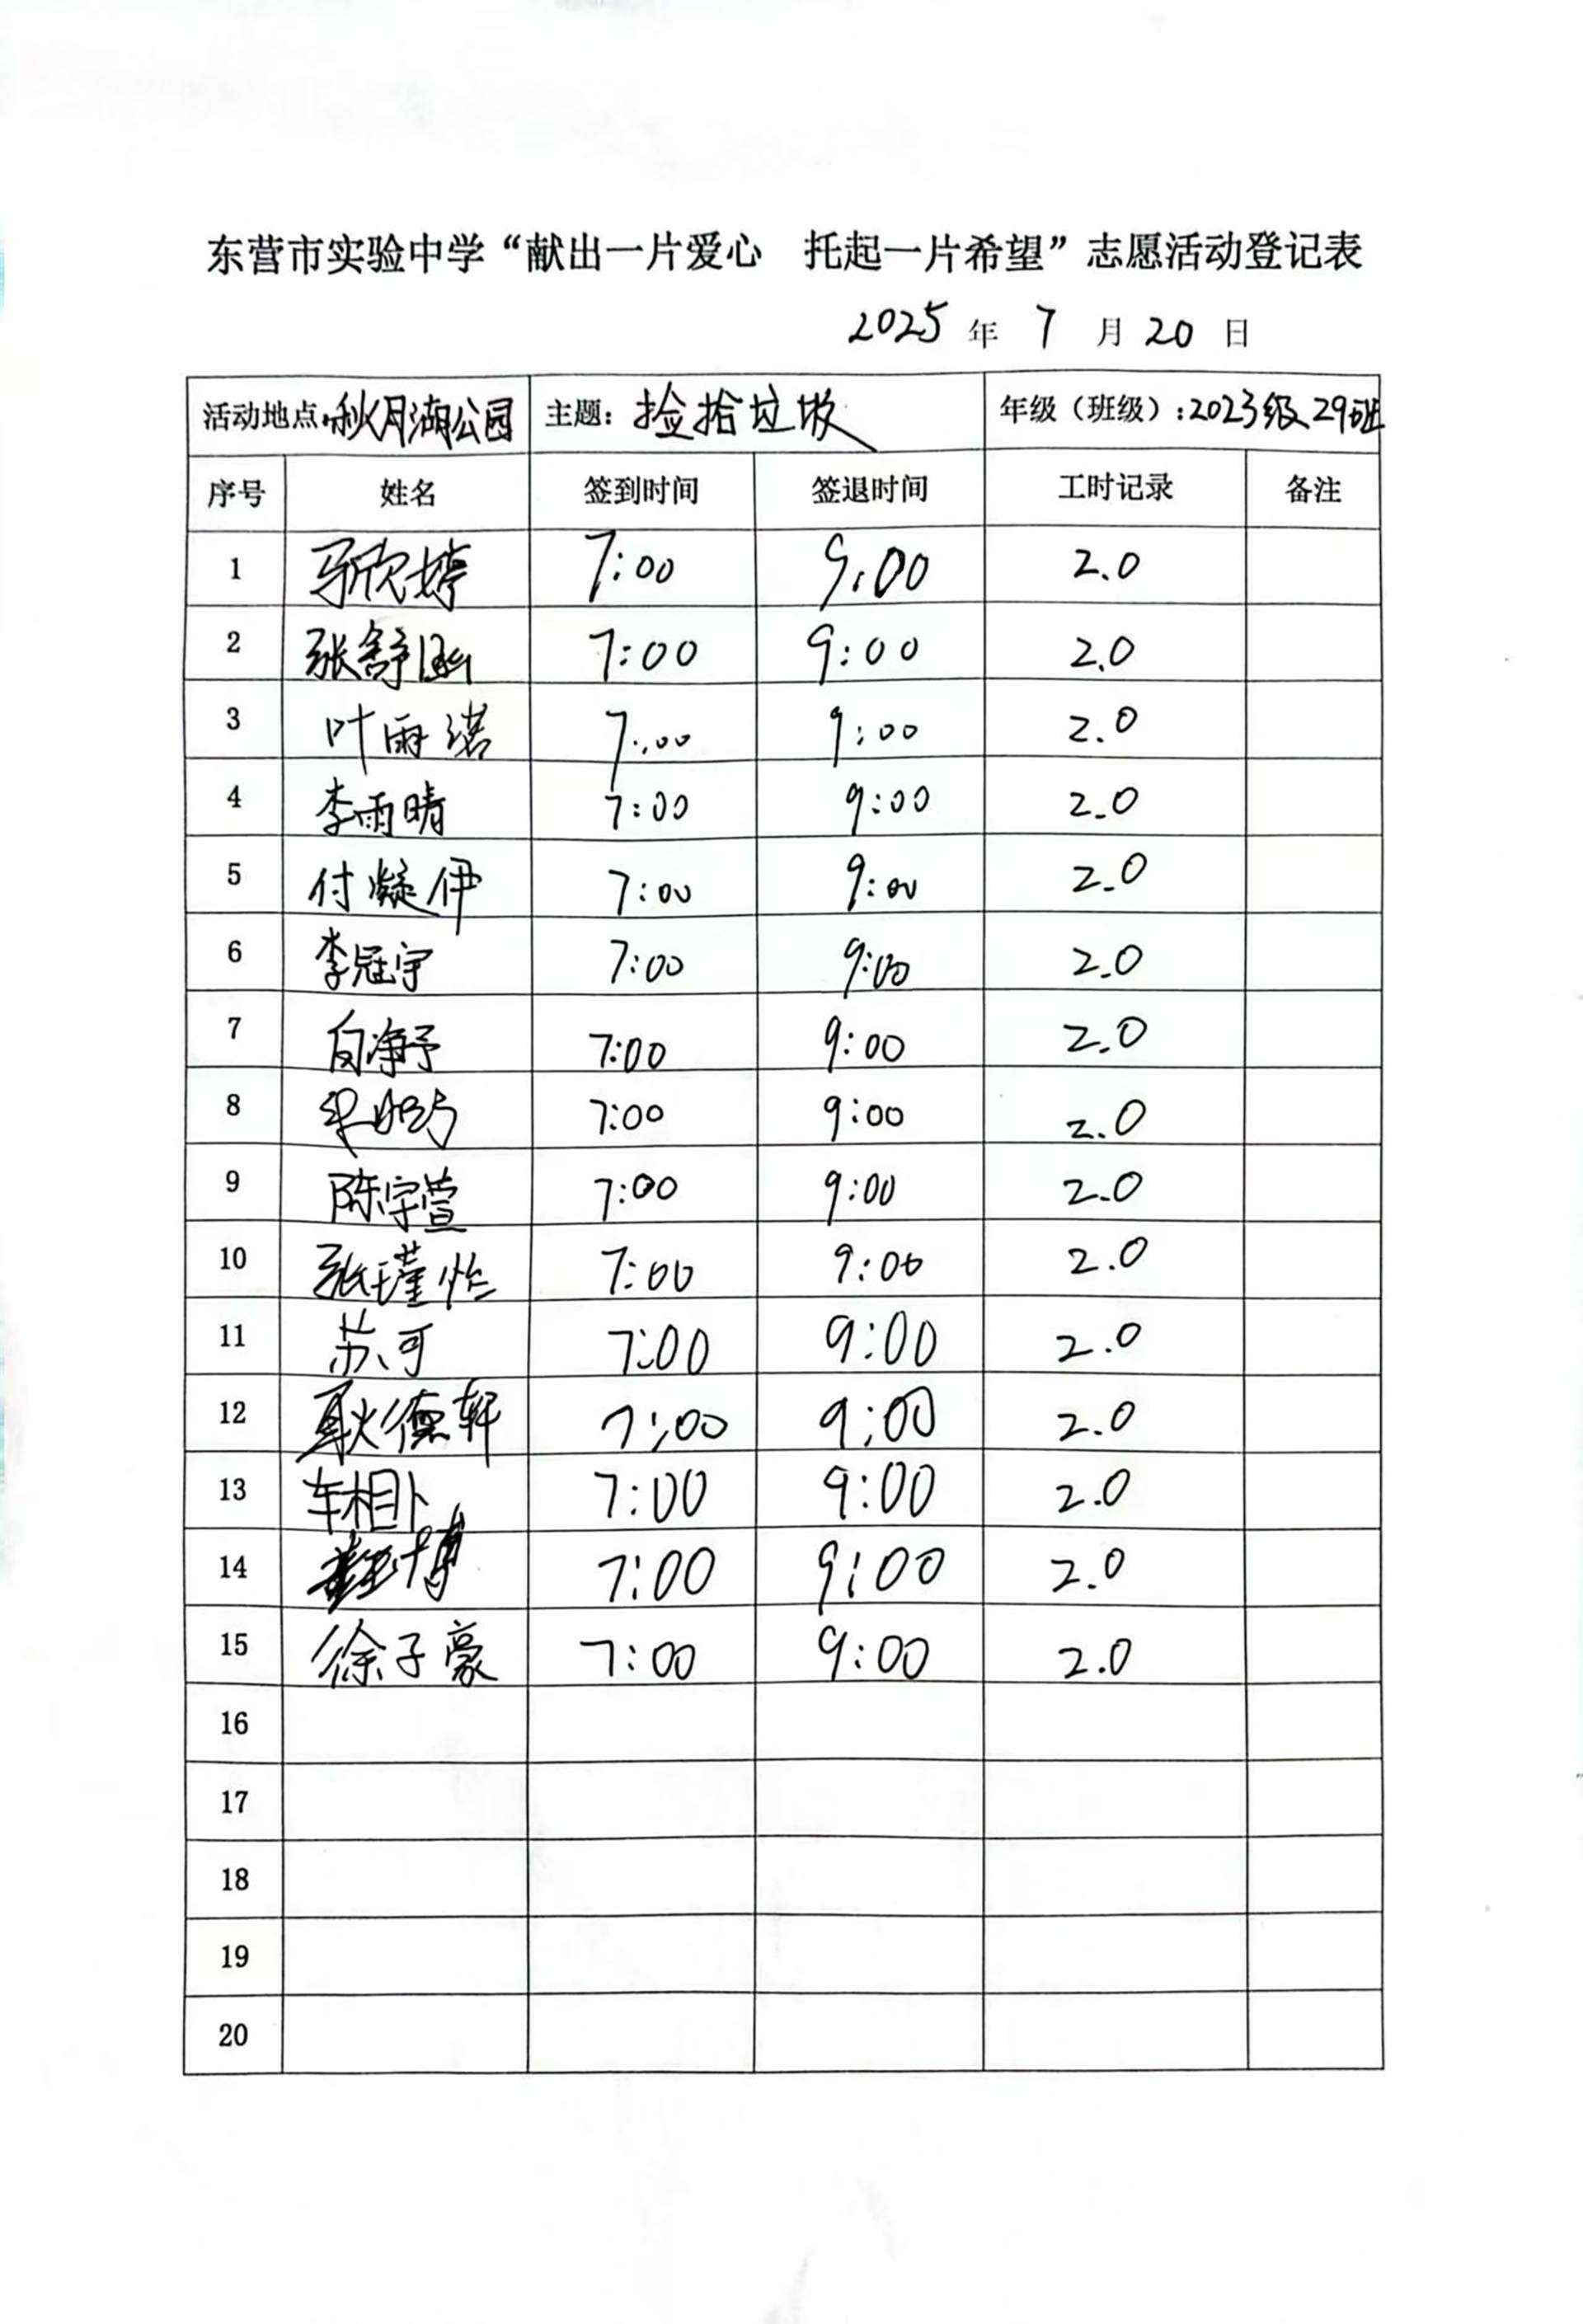 东营市实验中学“献出一片爱心 托起一片希望”志愿活动登记表
2025 年 7 月 20 日
活动地点:秋月湖公园 主题：捡拾垃圾 年级（班级）:2023级29班
序号 姓名 签到时间 签退时间 工时记录 备注
1 马欣婷 7:00 9:00 2.0
2 张舒涵 7:00 9:00 2.0
3 叶雨诺 7:00 9:00 2.0
4 李雨晴 7:00 9:00 2.0
5 付凝伊 7:00 9:00 2.0
6 李冠宇 7:00 9:00 2.0
7 向净予 7:00 9:00 2.0
8 7:00 9:00 2.0
9 陈宇萱 7:00 9:00 2.0
10 张瑾怡 7:00 9:00 2.0
11 苏可 7:00 9:00 2.0
12 耿德轩 7:00 9:00 2.0
13 车相卜 7:00 9:00 2.0
14 7:00 9:00 2.0
15 徐子豪 7:00 9:00 2.0
16
17
18
19
20